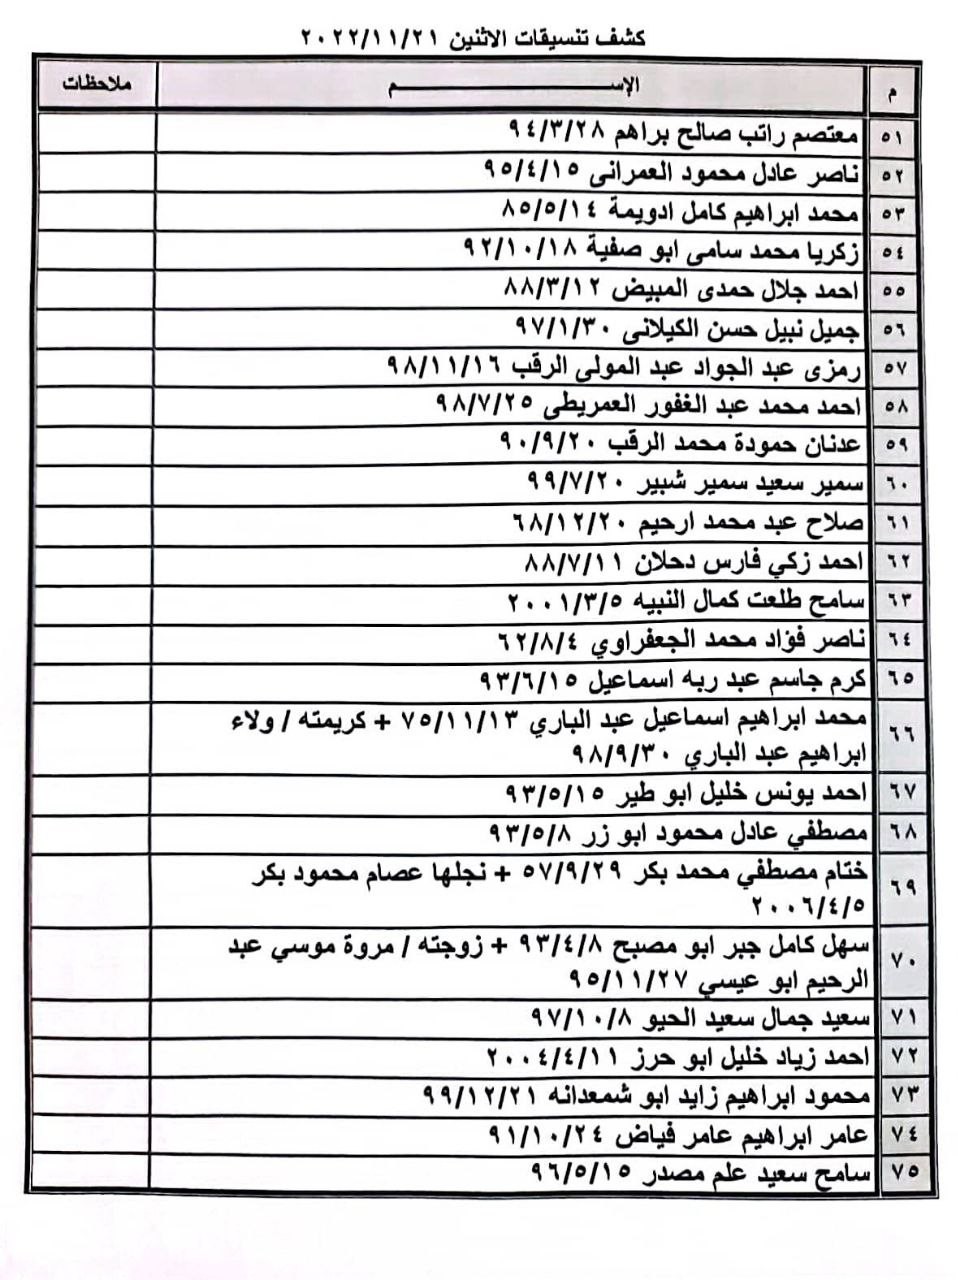 كشف تنسيقات الاثنين ٢٠٢٢/١١/٢١
م الإســـــــــم ملاحظات
٥١ معتصم راتب صالح براهم ٩٤/٣/٢٨
٥٢ ناصر عادل محمود العمرانى ٩٥/٤/١٥
٥٣ محمد ابراهيم كامل ادويمة ٨٥/٥/١٤
٥٤ زكريا محمد سامى ابو صفية ٩٢/١٠/١٨
٥٥ احمد جلال حمدى المبيض ٨٨/٣/١٢
٥٦ جميل نبيل حسن الكيلانى ٩٧/١/٣٠
٥٧ رمزى عبد الجواد عبد المولى الرقب ٩٨/١١/١٦
٥٨ احمد محمد عبد الغفور العمريطى ٩٨/٧/٢٥
٥٩ عدنان حمودة محمد الرقب ٩٠/٩/٢٠
٦٠ سمير سعيد سمير شبير ٩٩/٧/٢٠
٦١ صلاح عبد محمد ارحيم ٦٨/١٢/٢٠
٦٢ احمد زكي فارس دحلان ٨٨/٧/١١
٦٣ سامح طلعت كمال النبيه ٢٠٠١/٣/٥
٦٤ ناصر فؤاد محمد الجعفراوي ٦٢/٨/٤
٦٥ كرم جاسم عبد ربه اسماعيل ٩٣/٦/١٥
٦٦ محمد ابراهيم اسماعيل عبد الباري ٧٥/١١/١٣ + كريمته / ولاء
ابراهيم عبد الباري ٩٨/٩/٣٠
٦٧ احمد يونس خليل ابو طير ٩٣/٥/١٥
٦٨ مصطفي عادل محمود ابو زر ٩٣/٥/٨
٦٩ ختام مصطفي محمد بكر ٥٧/٩/٢٩ + نجلها عصام محمود بكر
٢٠٠٦/٤/٥
٧٠ سهل كامل جبر ابو مصبح ٩٣/٤/٨ + زوجته / مروة موسي عبد
الرحيم ابو عيسي ٩٥/١١/٢٧
٧١ سعيد جمال سعيد الحيو ٩٧/١٠/٨
٧٢ احمد زياد خليل ابو حرز ٢٠٠٤/٤/١١
٧٣ محمود ابراهيم زايد ابو شمعدانه ٩٩/١٢/٢١
٧٤ عامر ابراهيم عامر فياض ٩١/١٠/٢٤
٧٥ سامح سعيد علم مصدر ٩٦/٥/١٥